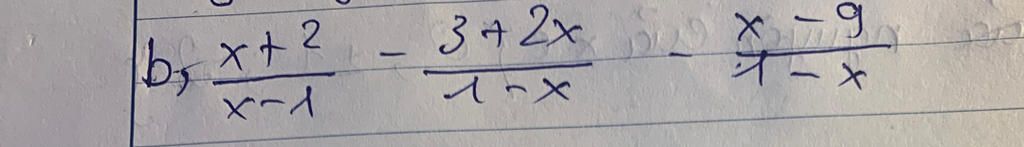 b, \frac{x+2}{x-1} - \frac{3+2x}{1-x} - \frac{x-9}{1-x}